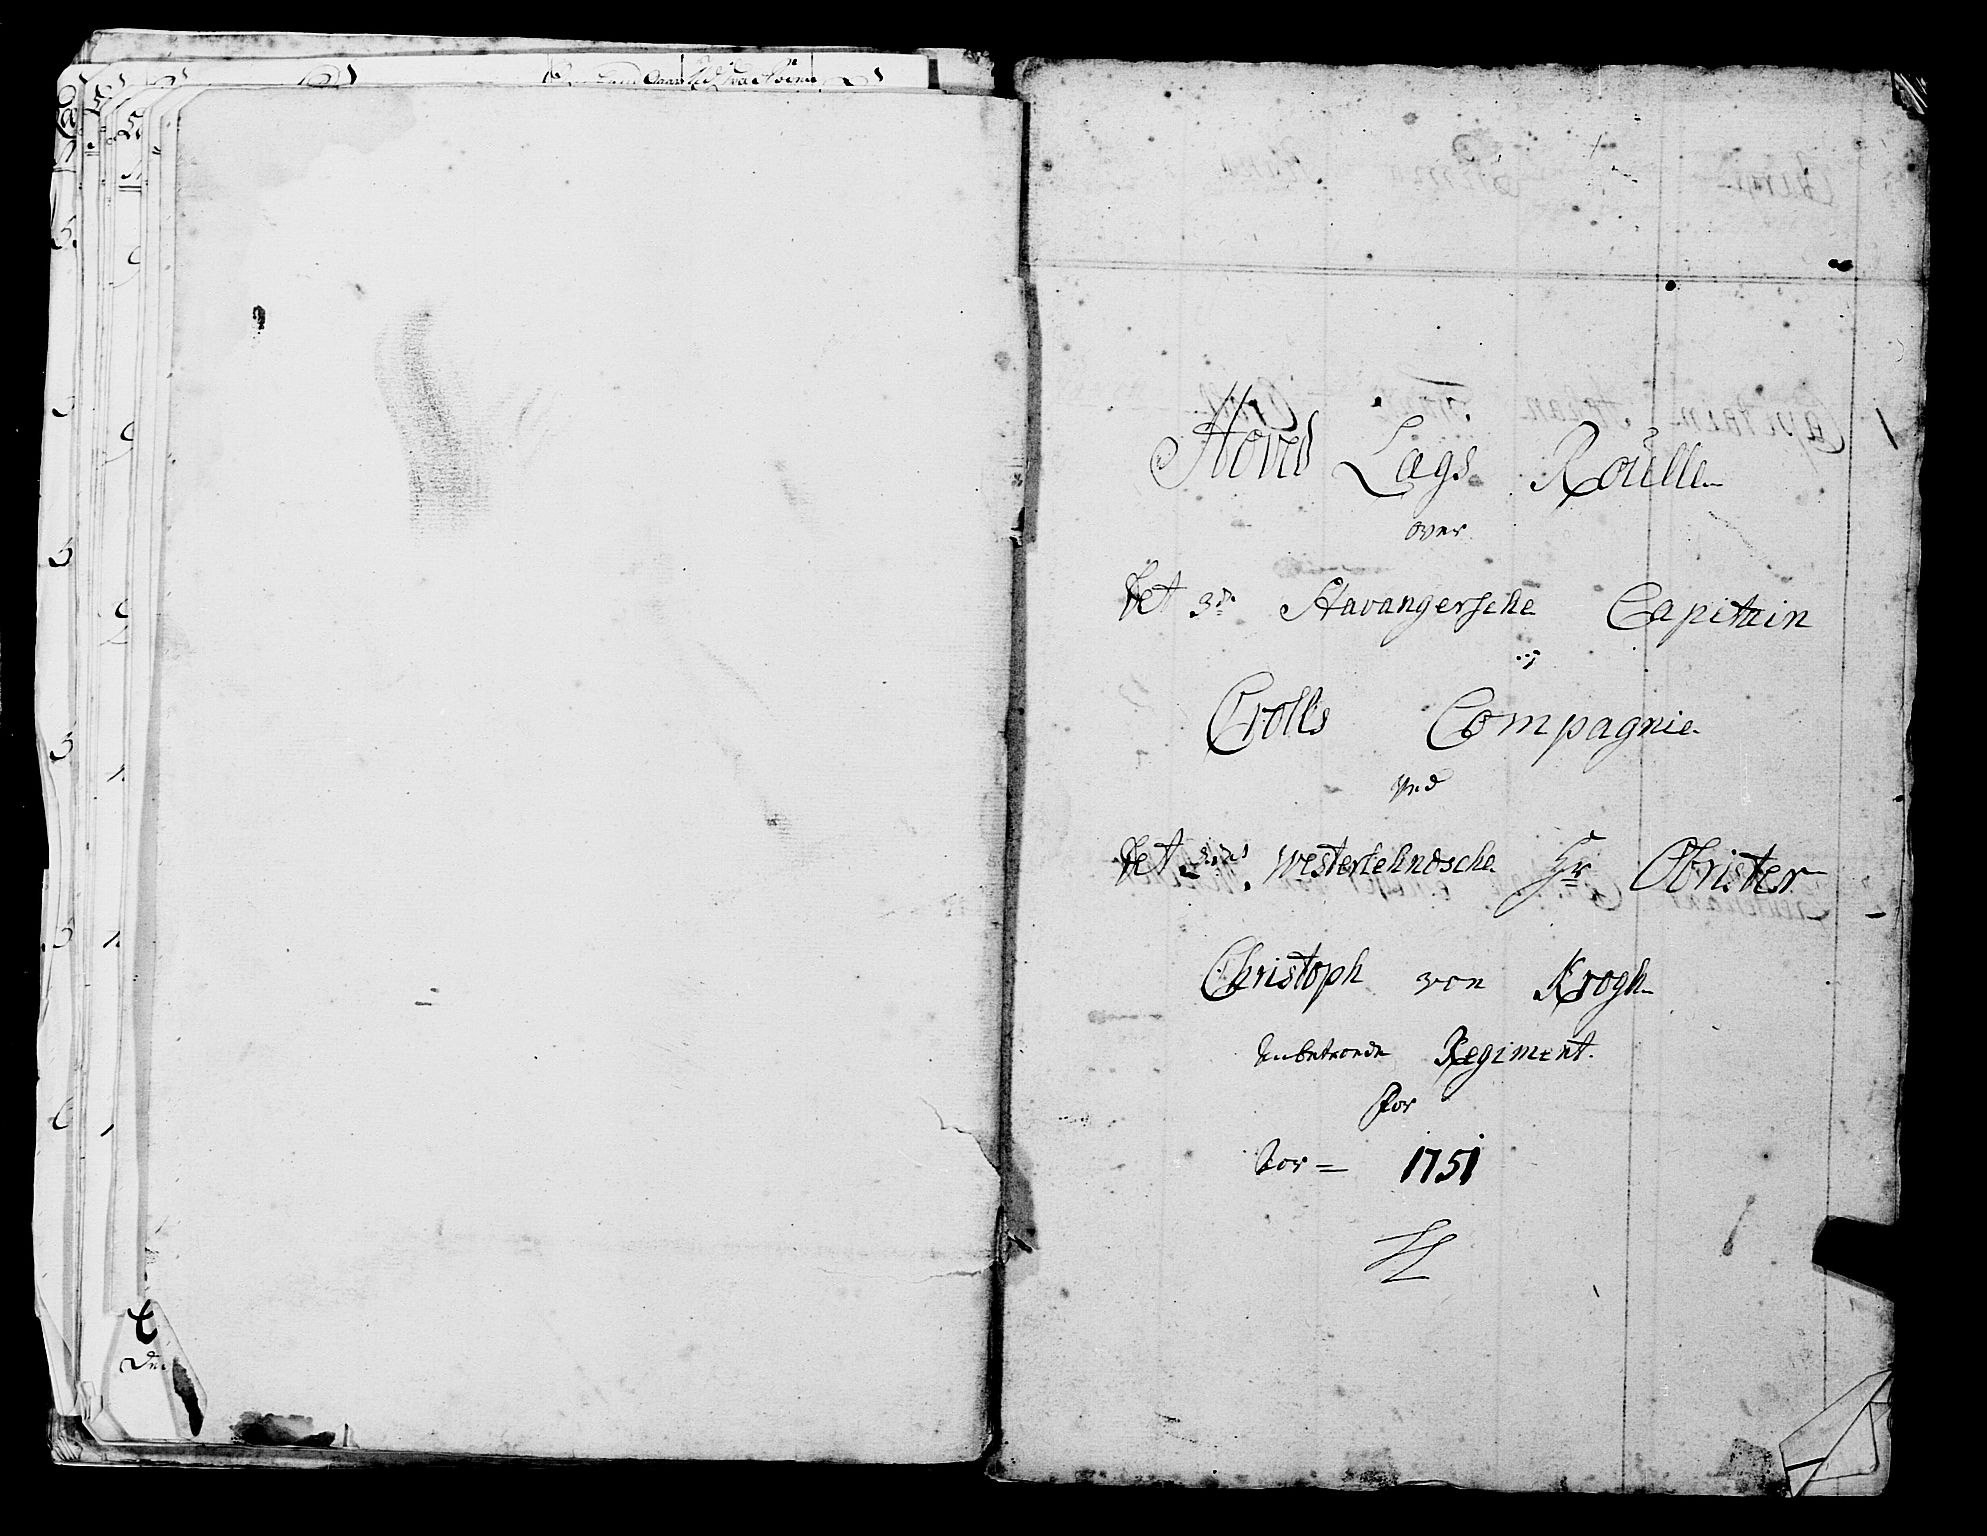 Hoved Lægs Roulle
over
Det 3de Stavangersche Capitain
Crolls Compagnie
ved
Det 2det Westerlehndsche Hr Obrister
Christoph von Krogh
anbetroede Regiment.
for
1751